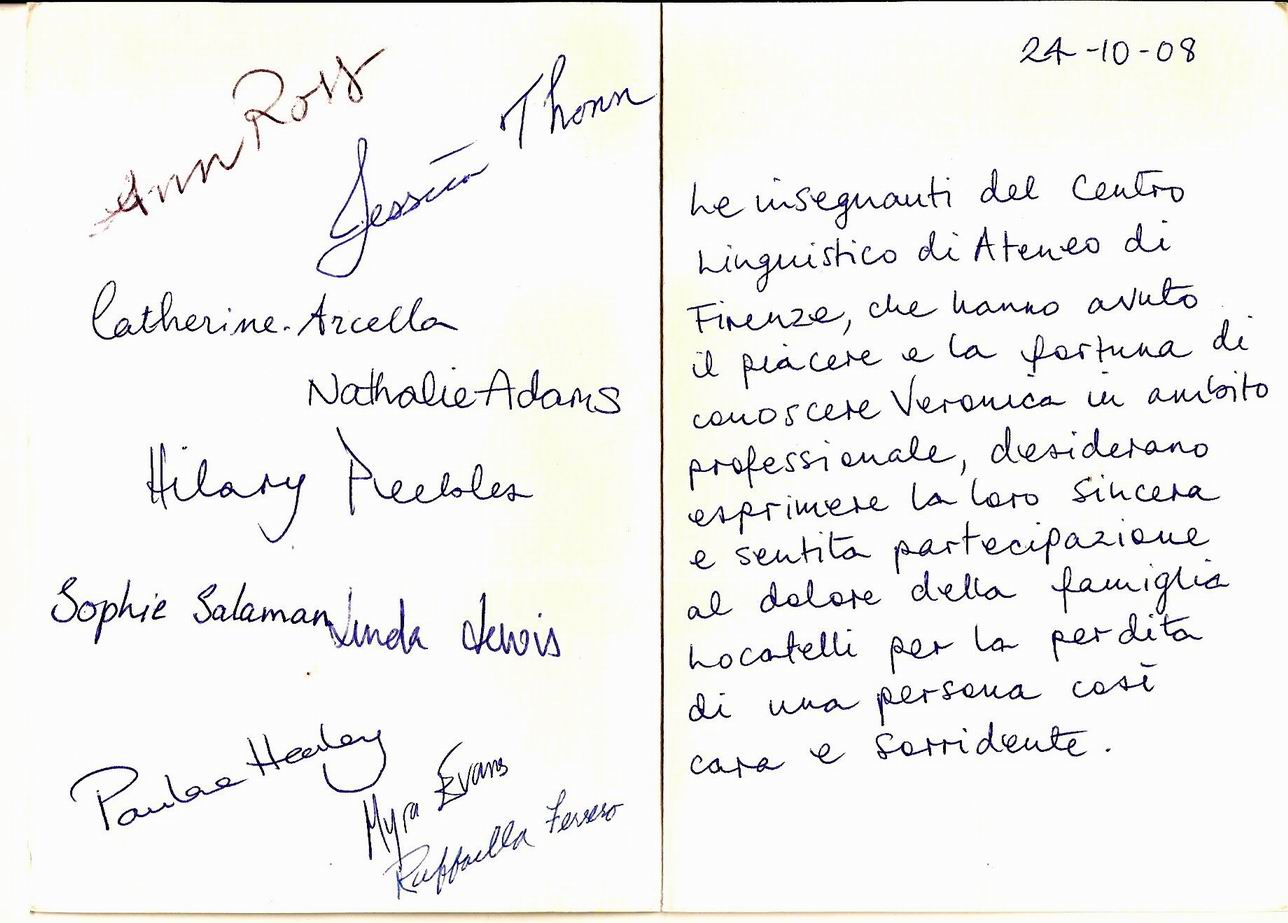 Ann Ross
Jessica Thonn
Catherine Arcella
Nathalie Adams
Hilary Peebles
Sophie Salaman
Linda Lewis
Paulae Healey
Myra Evans
Raffaella Ferrero
24-10-08
Le insegnanti del Centro
Linguistico di Ateneo di
Firenze, che hanno avuto
il piacere e la fortuna di
conoscere Veronica in ambito
professionale, desiderano
esprimere la loro sincera
e sentita partecipazione
al dolore della famiglia
Locatelli per la perdita
di una persona così
cara e sorridente.